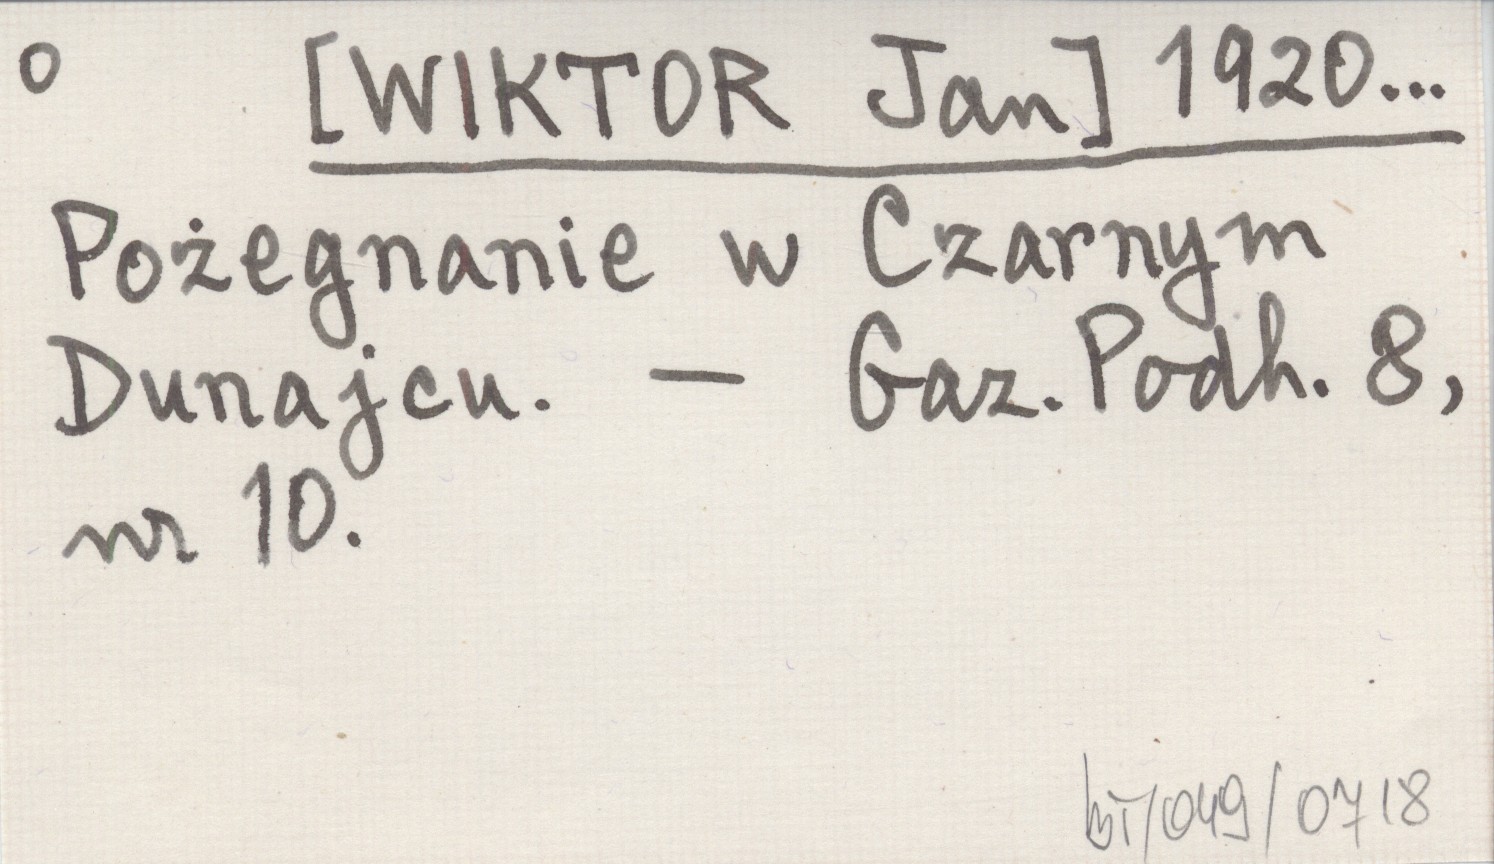 o [WIKTOR Jan] 1920...
Pożegnanie w Czarnym
Dunajcu. — Gaz. Podh. 8,
nr 10.
/049/0718